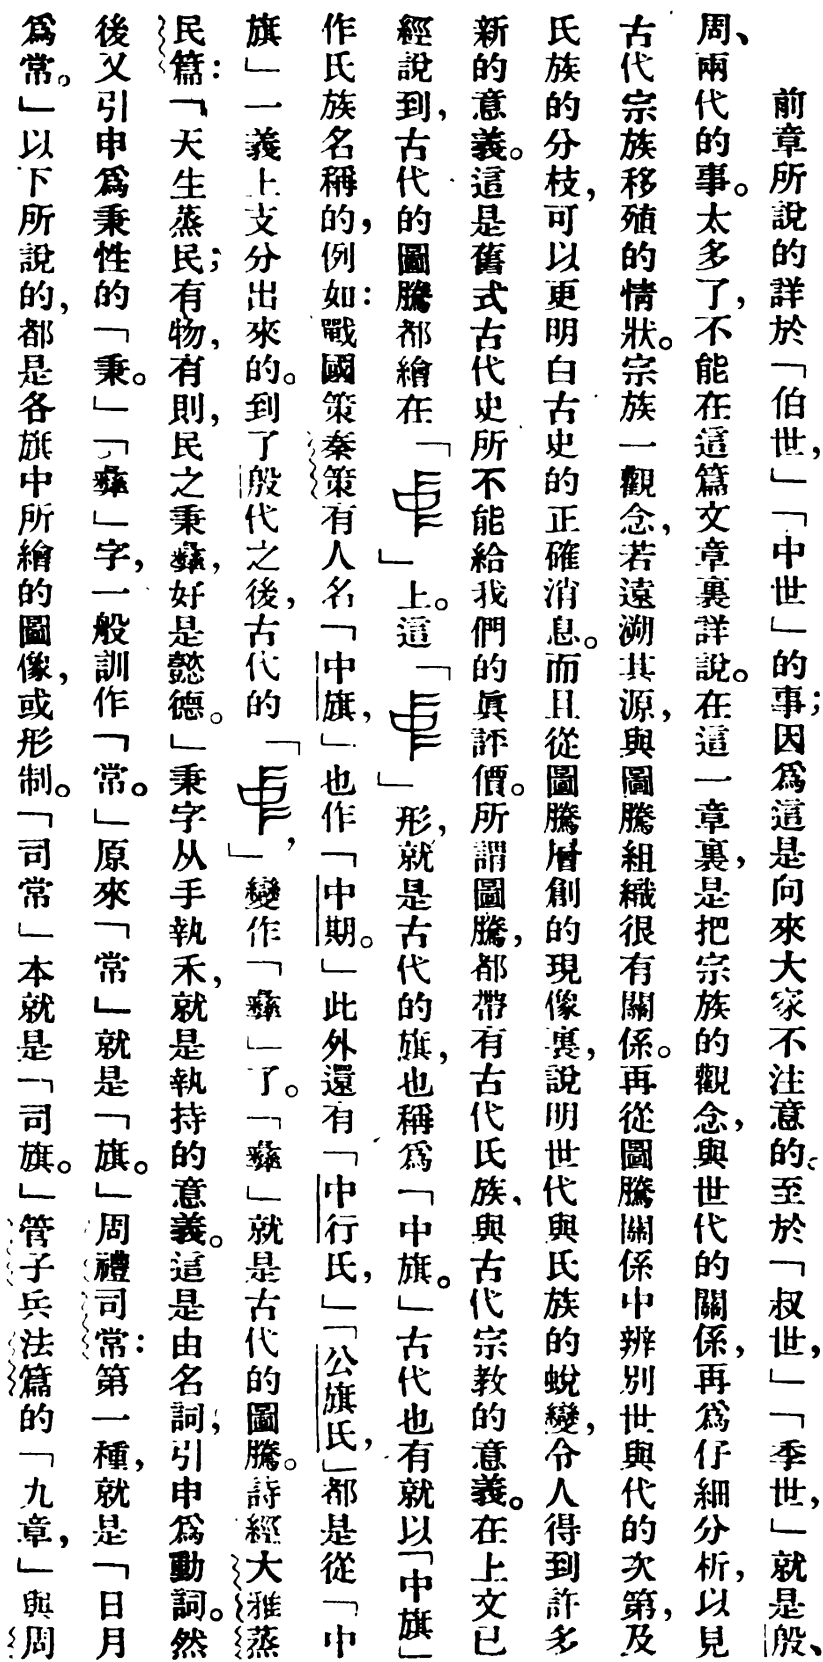 前章所說的詳於「伯世，」「中世」的事；因爲這是向來大家不注意的。至於「叔世，」「季世，」就是殷、
周、兩代的事。太多了，不能在這篇文章裏詳說。在這一章裏，是把宗族的觀念，與世代的關係，再爲仔細分析，以見
古代宗族移殖的情狀。宗族一觀念，若遠溯其源，與圖騰組織很有關係。再從圖騰關係中辨別世與代的次第，及
氏族的分枝，可以更明白古史的正確消息。而且從圖騰層創的現像裏，說明世代與氏族的蛻變，令人得到許多
新的意義。這是舊式古代史所不能給我們的眞評價。所謂圖騰，都帶有古代氏族、與古代宗教的意義。在上文已
經說到，古代的圖騰都繪在「」上。這「」形，就是古代的旗，也稱爲「中旗。」古代也有就以「中旗」
作氏族名稱的，例如：戰國策秦策有人名「中旗，」也作「中期。」此外還有「中行氏，」「公旗氏，」都是從「中
旗」一義上支分出來的。到了殷代之後，古代的「」，變作「彝」了。「彝」就是古代的圖騰。詩經大雅蒸
民篇：「天生蒸民；有物，有則，民之秉彝，好是懿德。」秉字从手執禾，就是執持的意義。這是由名詞，引申爲動詞。然
後又引申爲秉性的「秉。」「彝」字，一般訓作「常。」原來「常」就是「旗。」周禮司常：第一種，就是「日月
爲常。」以下所說的，都是各旗中所繪的圖像，或形制。「司常」本就是「司旗。」管子兵法篇的「九章，」與周